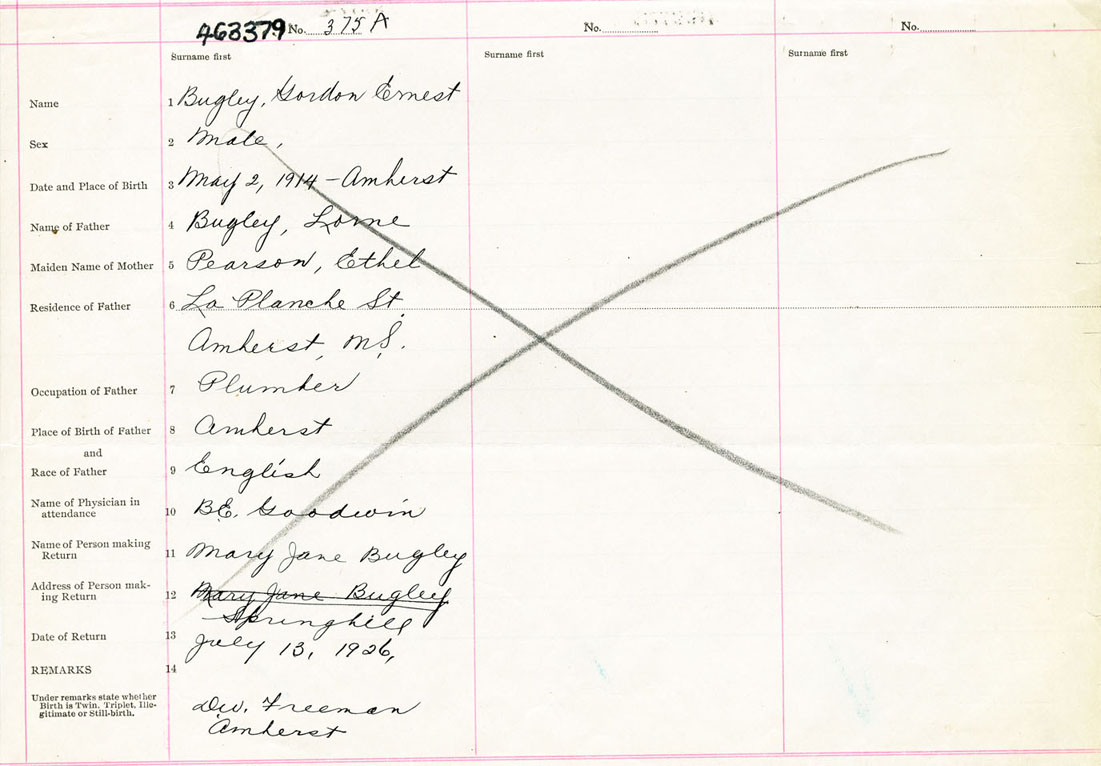 463379 No. 375 A No. No.
Surname first Surname first Surname first
Name 1 Bugley, Gordon Ernest
Sex 2 Male,
Date and Place of Birth 3 May 2, 1914 - Amherst
Name of Father 4 Bugley, Lorne
Maiden Name of Mother 5 Pearson, Ethel
Residence of Father 6 La Planche St.
Amherst, N.S.
Occupation of Father 7 Plumber
Place of Birth of Father 8 Amherst
and
Race of Father 9 English
Name of Physician in
attendance 10 B.E. Goodwin
Name of Person making
Return 11 Mary Jane Bugley
Address of Person mak-
ing Return 12 Mary Jane Bugley
Springhill
Date of Return 13 July 13, 1926,
REMARKS 14
Under remarks state whether
Birth is Twin, Triplet, Ille-
gitimate or Still-birth.
Div. Freeman
Amherst